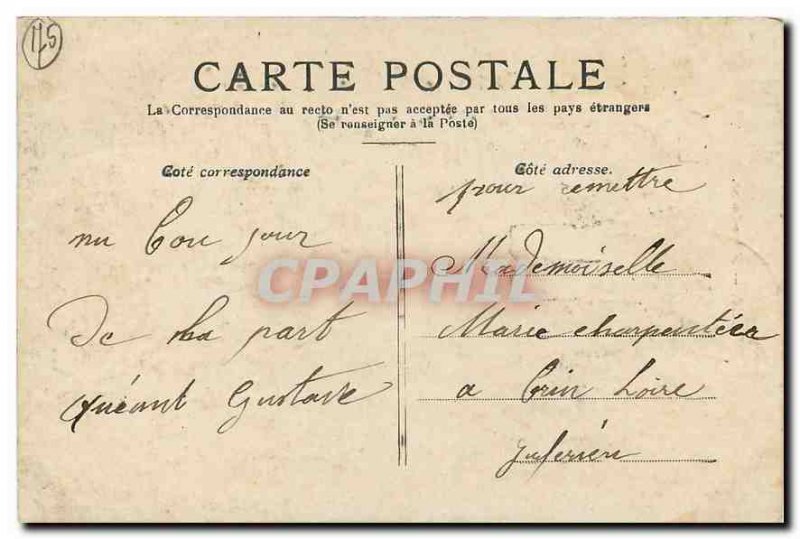 175
CARTE POSTALE
La Correspondance au recto n'est pas acceptée par tous les pays étrangers
(Se renseigner à la Poste)
Coté correspondance
Côté adresse.
CPAPHIL
un bon jour
De ma part
Gustave
pour remettre
Mademoiselle
Marie
a Loire